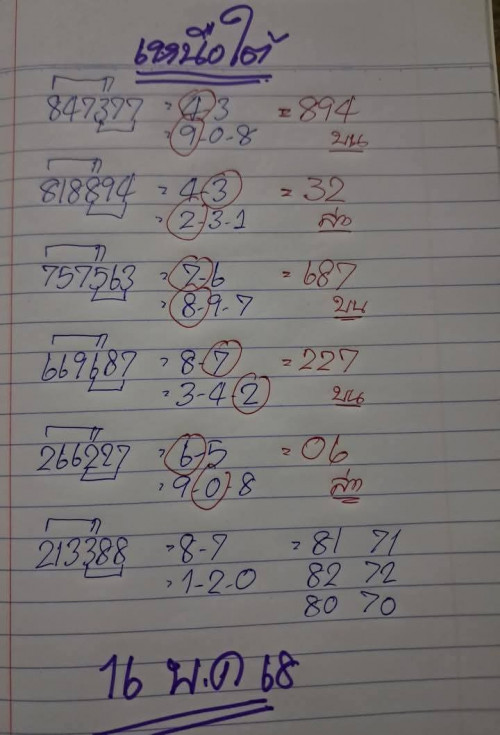 เหนือใต้
847377 = 4-3 = 894
= 9-0-8 บน
818894 = 4-3 = 32
= 2-3-1 ล่าง
757563 = 7-6 = 687
= 8-9-7 บน
669687 = 8-7 = 227
= 3-4-2 บน
266227 = 6-5 = 06
= 9-0-8 ล่าง
213388 = 8-7 = 81 71
= 1-2-0 82 72
80 70
16 พ.ค 68